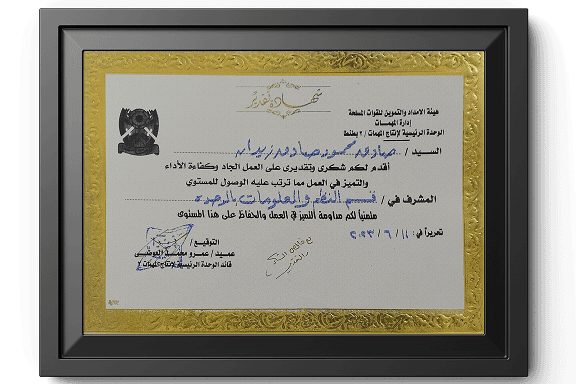 شهادة تقدير
هيئة الامداد والتموين للقوات المسلحة
إدارة المهمات
الوحدة الرئيسية لإنتاج المهمات / ٢ بطنطا
السيد / صادق محمود صادق زيدان
أقدم لكم شكرى وتقديرى على العمل الجاد وكفاءة الأداء
والتميز في العمل مما ترتب عليه الوصول للمستوي
المشرف في / قسم النظم والمعلومات بالوحدة
متمنياً لكم مداومة التميز في العمل والحفاظ على هذا المستوى
تحريراً في : ١١ / ٦ / ٢٠٢٣
مع خالص الشكر
والتقدير
التوقيع /
عميد / عمرو محمد العوضى
قائد الوحدة الرئيسية لإنتاج المهمات / ٢